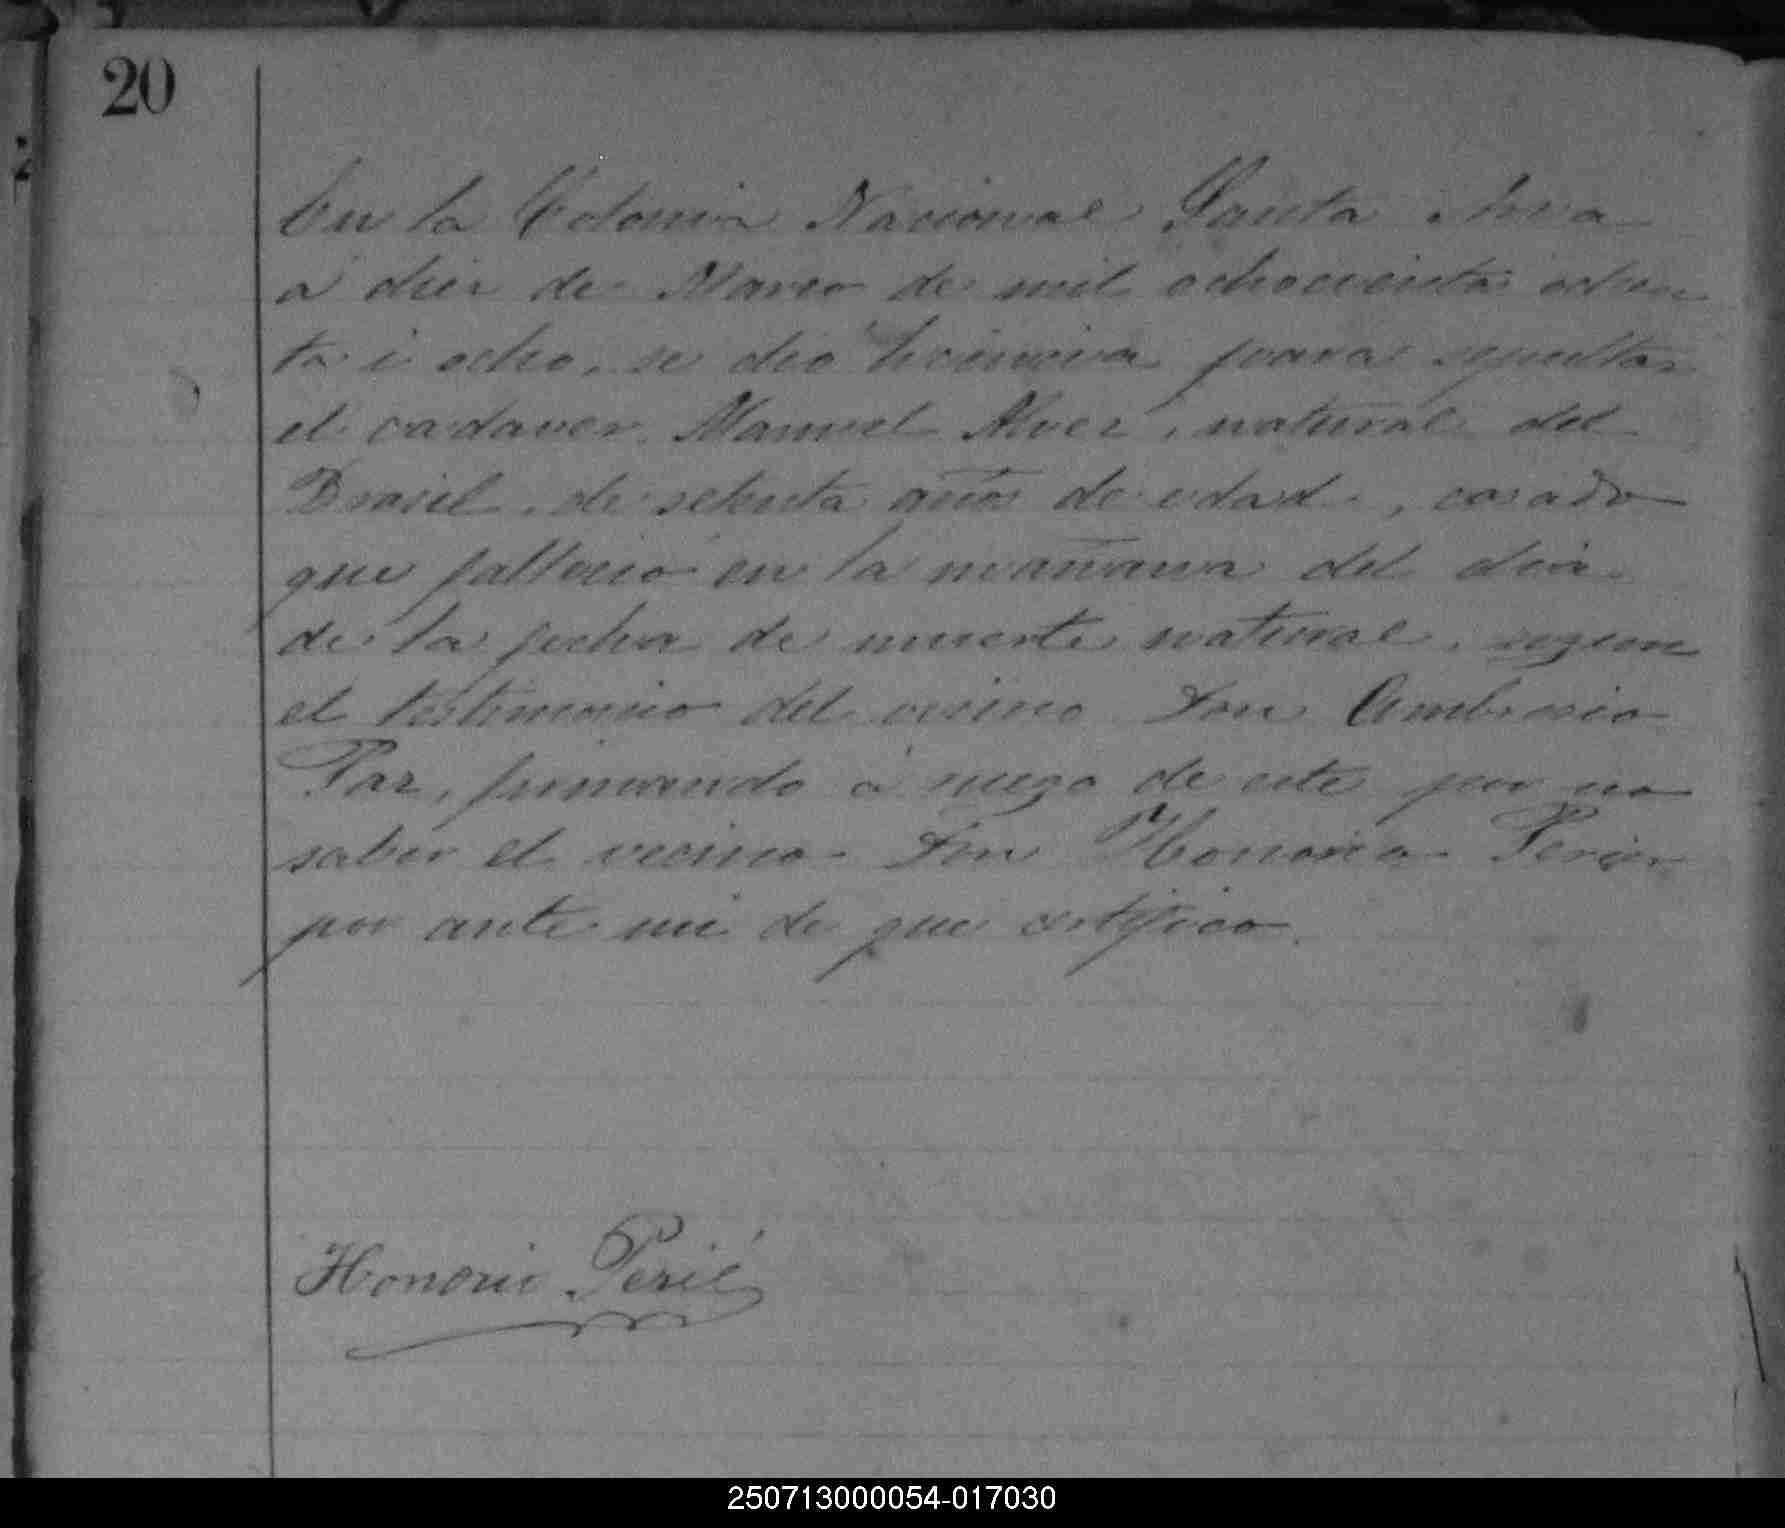 20
En la Colonia Nacional Santa Ana
á diez de Marzo de mil ochocientos ochen
ta i ocho, se dió licencia para sepultar
el cadaver Manuel Alvez, natural del
Brasil, de setenta años de edad, casado
que falleció en la mañana del dia
de la fecha de muerte natural, segun
el testimonio del vecino Don Ambrosio
Paz, firmando á ruego de este por no
saber el vecino Don Honorio Perier
por ante mi de que certifico.
Honorio Perié
250713000054-017030